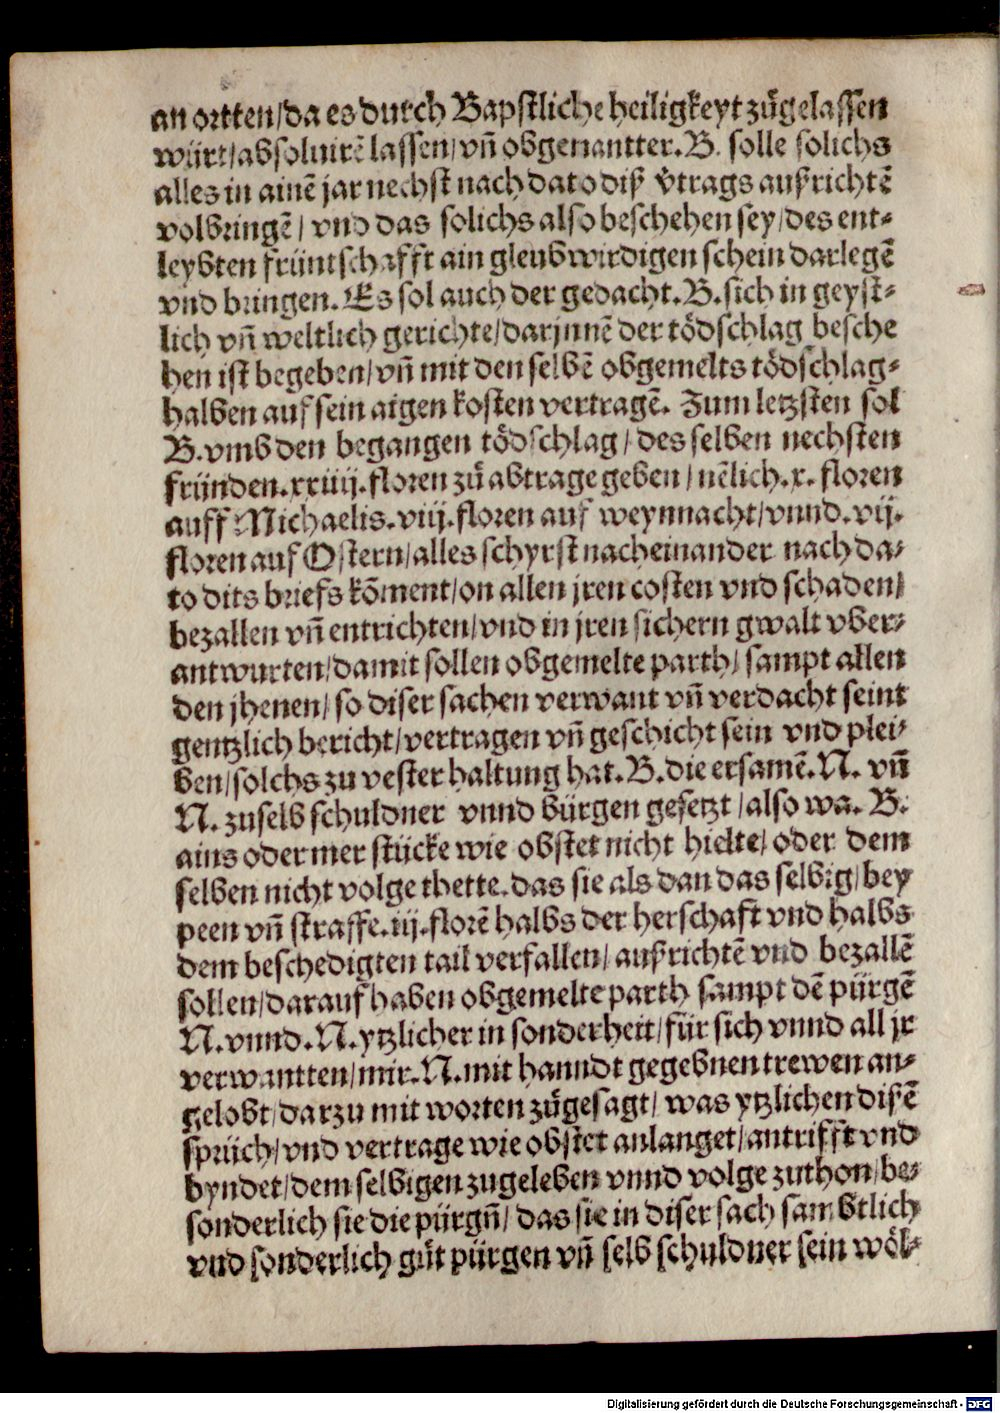 an ortten/da es durch Bapstliche heiligkeyt zůgelassen
würt/absoluirē lassen/vñ obgenantter.B. solle solichs
alles in ainē jar nechst nach dato diß v̄trags außrichtē
volbringē/ vnd das solichs also beschehen sey/des ent-
leybten früntschafft ain gleubwirdigen schein darlegē
vnd bringen. Es sol auch der gedacht.B.sich in geyst-
lich vñ weltlich gerichte/darjnnē der tödschlag besche
hen ist begeben/vñ mit den selbē obgemelts tödschlag-
halben auf sein aigen kosten vertragē. Zum letzsten sol
B.vmb den begangen tödschlag/des selben nechsten
fründen.xxiiij.floren zů abtrage geben/nēlich.x.floren
auff Michaelis.viij.floren auf weynnacht/vnnd.vij.
floren auf Ostern/alles schyrst nacheinander nach da-
to dits briefs kōment/on allen jren costen vnd schaden/
bezallen vñ entrichten/vnd in jren sichern gwalt vber-
antwurten/damit sollen obgemelte parth/sampt allen
den jhenen/so diser sachen verwant vñ verdacht seint
gentzlich bericht/vertragen vñ geschicht sein vnd plei-
ben/solchs zu vester haltung hat.B.die ersamē.N. vñ
N. zuselb schuldner vnnd bürgen gesetzt/also wa. B.
ains oder mer stücke wie obstet nicht hielte/oder dem
selben nicht volge thette.das sie als dan das selbig/bey
peen vñ straffe.iij.florē halbs der herschaft vnd halbs
dem beschedigten tail verfallen/außrichtē vnd bezallē
sollen/darauf haben obgemelte parth sampt dē pürgē
N.vnnd.N.ytzlicher in sonderheit/für sich vnnd all jr
verwantten/mir.N.mit hanndt gegebnen trewen an-
gelobt/darzu mit worten zůgesagt/was ytzlichen disē
sprüch/vnd vertrage wie obstet anlanget/antrifft vnd
byndet/dem selbigen zugeleben vnnd volge zuthon/be-
sonderlich sie die pürgñ/das sie in diser sach sambtlich
vnd sonderlich gůt pürgen vñ selb schuldner sein wöl-
Digitalisierung gefördert durch die Deutsche Forschungsgemeinschaft - DFG